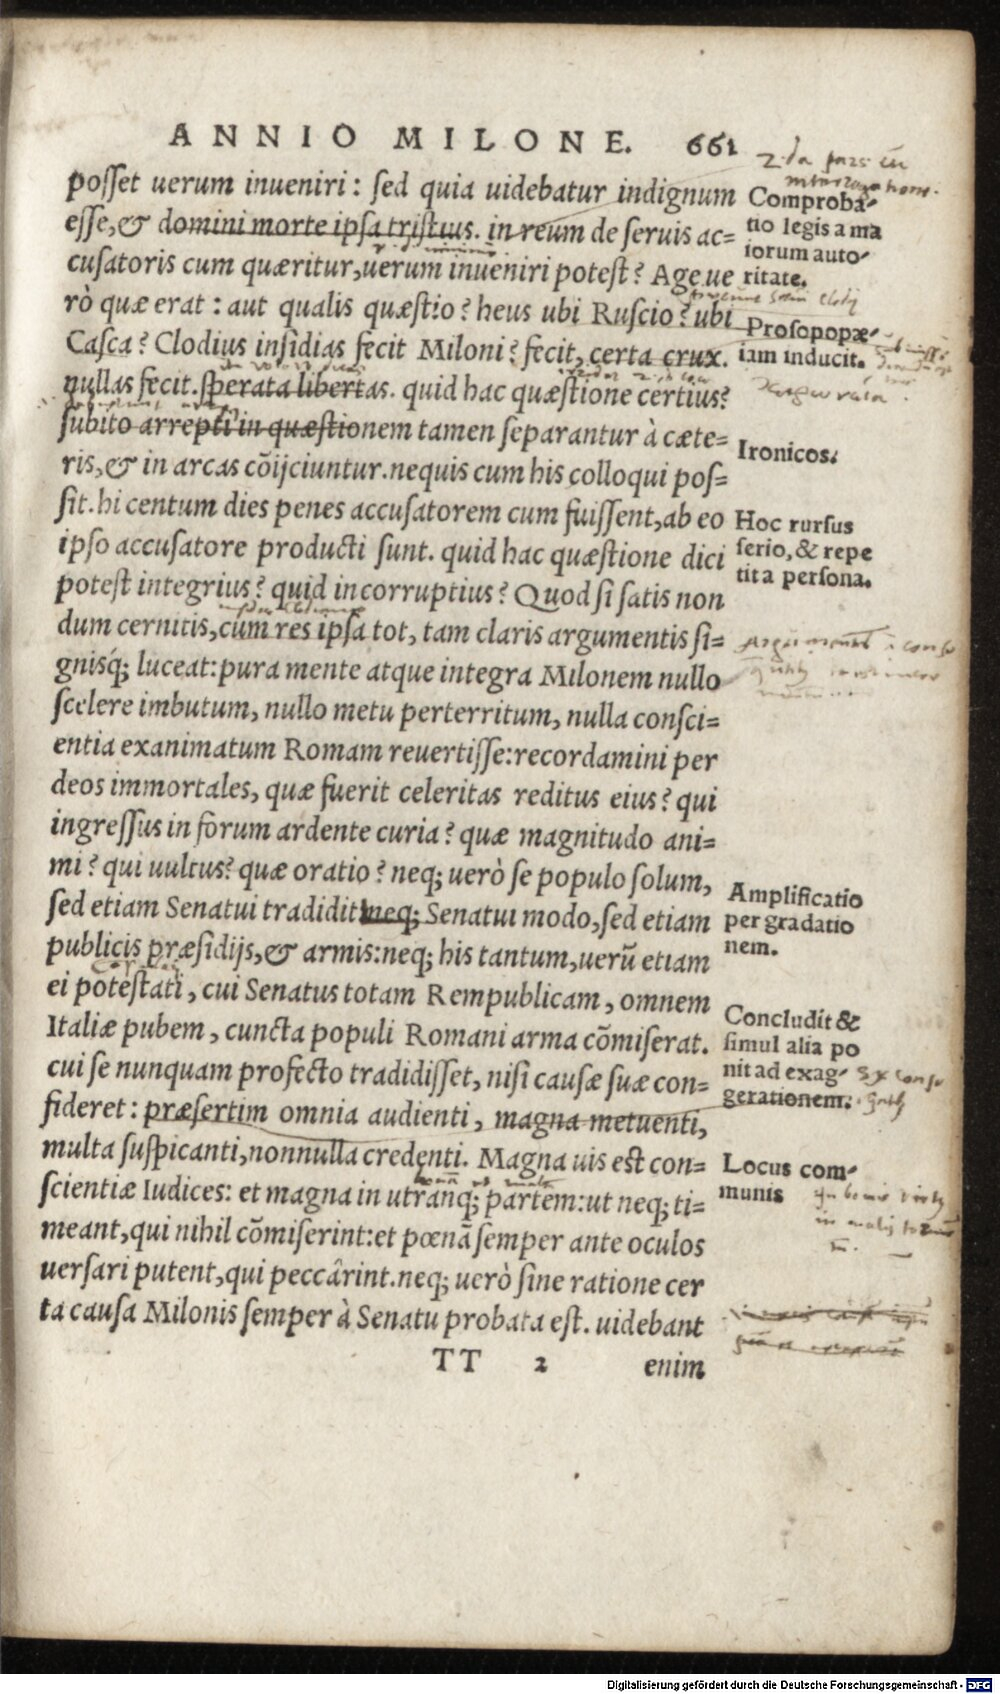 ANNIO MILONE. 661
posset uerum inueniri: sed quia uidebatur indignum
esse, & domini morte ipsa tristius. in reum de seruis ac=
cusatoris cum quæritur, uerum inueniri potest? Age ue
rò quæ erat: aut qualis quæstio? heus ubi Ruscio? ubi
Casca? Clodius insidias fecit Miloni? fecit, certa crux.
nullas fecit. sperata libertas. quid hac quæstione certius?
subito arrepti in quæstionem tamen separantur à cæte=
ris, & in arcas cõijciuntur. nequis cum his colloqui pos=
sit. hi centum dies penes accusatorem cum fuissent, ab eo
ipso accusatore producti sunt. quid hac quæstione dici
potest integrius? quid incorruptius? Quod si satis non
dum cernitis, cum res ipsa tot, tam claris argumentis si=
gnisq; luceat: pura mente atque integra Milonem nullo
scelere imbutum, nullo metu perterritum, nulla consci=
entia exanimatum Romam reuertisse: recordamini per
deos immortales, quæ fuerit celeritas reditus eius? qui
ingressus in forum ardente curia? quæ magnitudo ani=
mi? qui uultus? quæ oratio? neq; uerò se populo solum,
sed etiam Senatui tradidit: neq; Senatui modo, sed etiam
publicis præsidijs, & armis: neq; his tantum, uerũ etiam
ei potestati, cui Senatus totam Rempublicam, omnem
Italiæ pubem, cuncta populi Romani arma cõmiserat.
cui se nunquam profecto tradidisset, nisi causæ suæ con=
fideret: præsertim omnia audienti, magna metuenti,
multa suspicanti, nonnulla credenti. Magna uis est con=
scientiæ Iudices: et magna in utranq; partem: ut neq; ti=
meant, qui nihil cõmiserint: et pœnã semper ante oculos
uersari putent, qui peccârint. neq; uerò sine ratione cer
ta causa Milonis semper à Senatu probata est. uidebant
TT 2 enim
2.da pars cũ
Comproba-
tio legis a ma
iorum auto-
ritate.
Prosopopæ-
iam inducit.
Ironicos.
Hoc rursus
serio, & repe
tita persona.
Amplificatio
per gradatio
nem.
Concludit &
simul alia po
nit ad exag-
gerationem.
Locus com-
munis
Digitalisierung gefördert durch die Deutsche Forschungsgemeinschaft - DFG